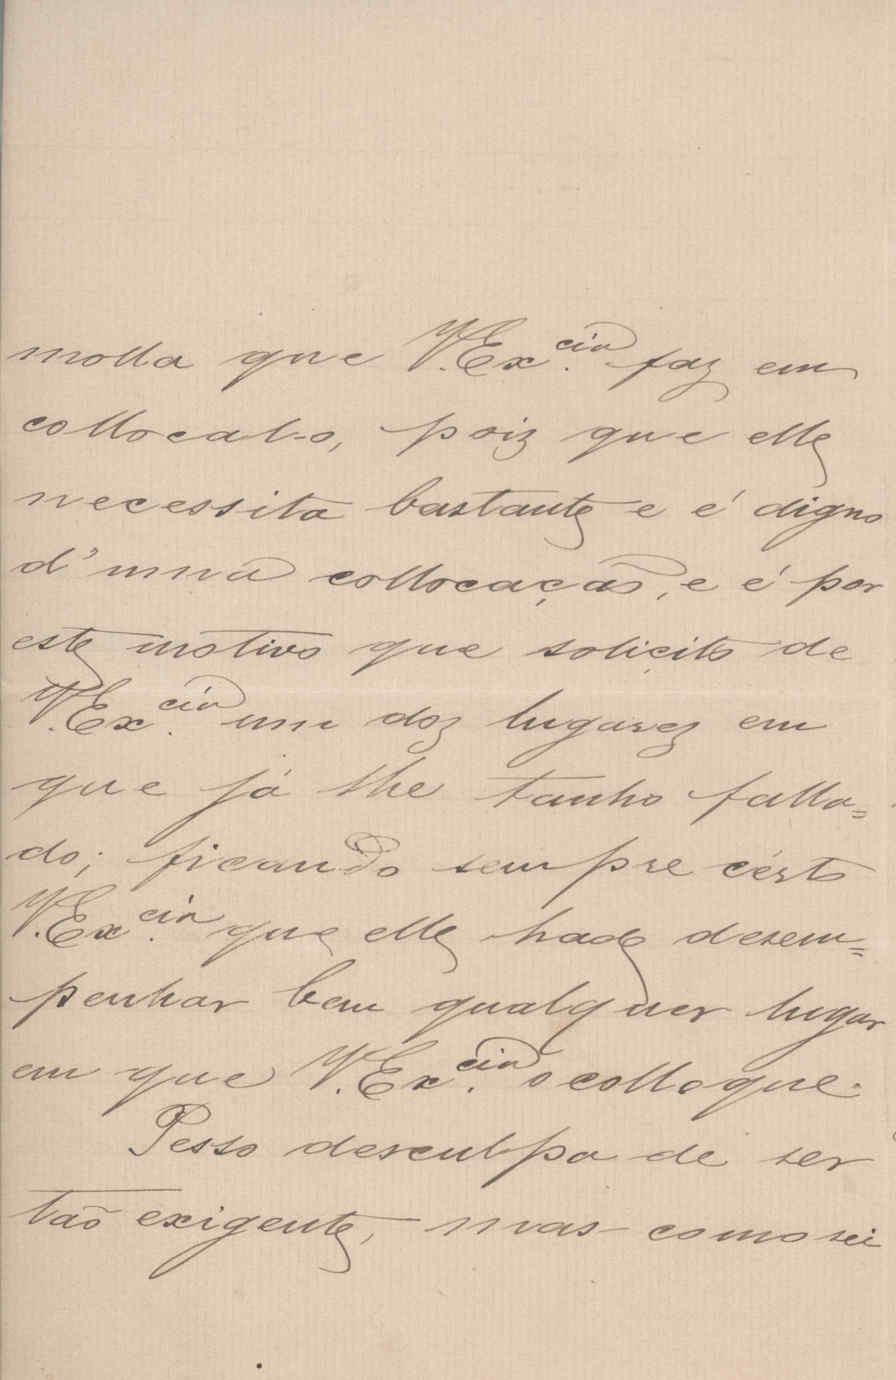 molla que V.Ex.cia faz em
collocal-o, poiz que elle
necessita bastante e é digno
d'uma collocação, e é por
este motivo que solicito de
V.Ex.cia um doz lugarez em
que já lhe tanho falla=
do; ficando sempre cérto
V.Ex.cia que elle hade desem=
penhar bem qualquer lugar
em que V.Ex.cia o colloque.
Pesso desculpa de ser
tão exigente, mas como sei